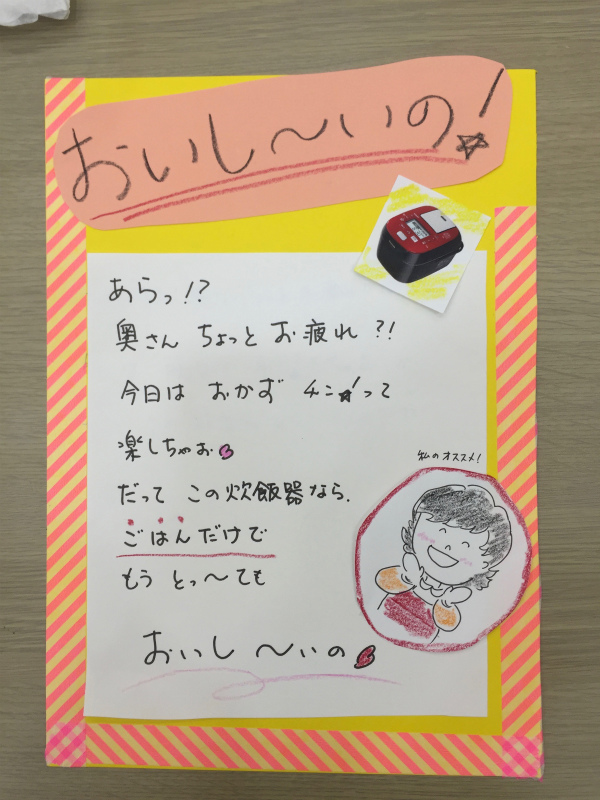 おいし〜いの!☆
あらっ!?
奥さん ちょっと お疲れ?!
今日は おかず チン☆!って
楽しちゃお
だって この炊飯器なら、
ごはんだけで
もう とっ〜ても
おいし〜いの
私のオススメ!